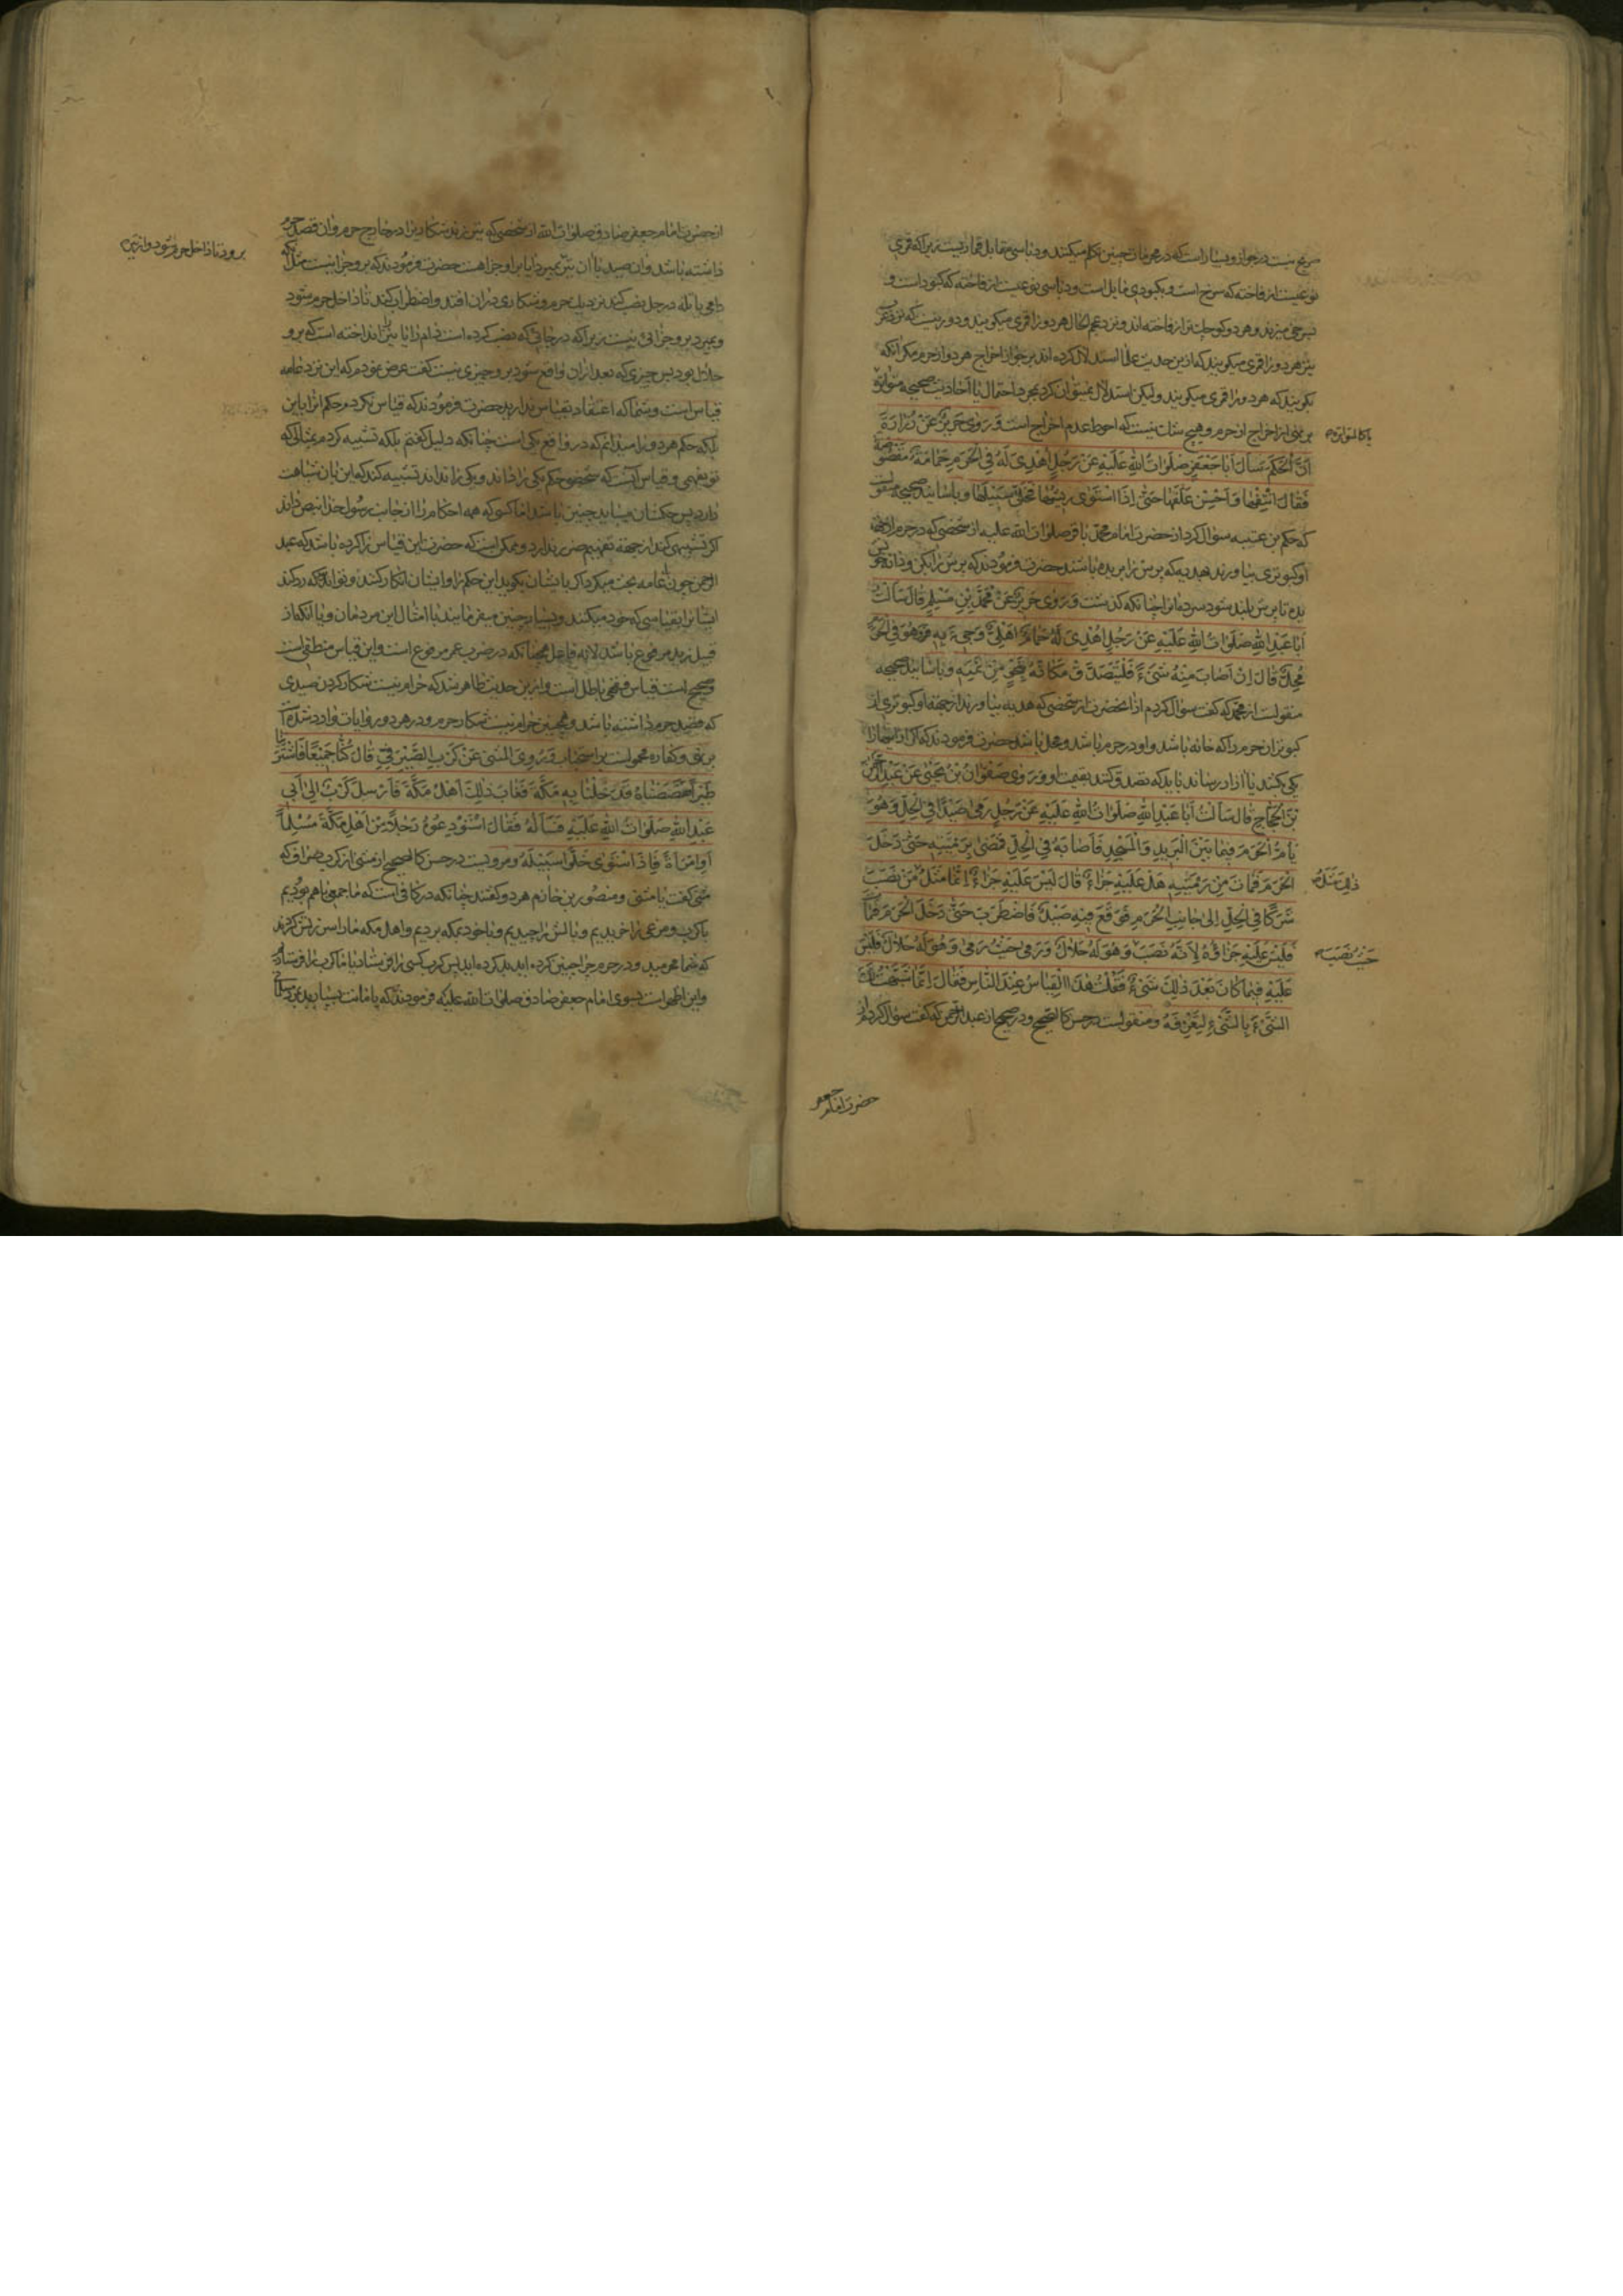 صریح نیست در جواز و بسیار است که در محرمات چنین تکلم میکنند و دباسی مقابل قماریست زیرا که قمری
نوعیست از فاخته که سرخ است و بکبودی مایل است و دباسی نوعیست از فاخته که کبود است و
بسرخی میزند و هر دو کوچک تر از فاخته اند و نزد عجم الحال هر دو را قمری میکویند و دور نیست که نزد عرب
نیز هر دو را قمری میکویند که ازین حدیث علما استدلال کرده اند بر جواز اخراج هر دو از حرم مکر آنکه
بکویند که هر دو را قمری میکویند ولیکن استدلال نمیتوان کرد بمجرد احتمال با احادیث صحیحه متواتره
یا کالمتواتره
بر نهی از اخراج از حرم و هیچ شک نیست که احوط عدم اخراج است وَ رَوٰی حَریزٌ عَنْ زُرَارَةَ
اَنَّ الْحَکَمَ سَأَلَ اَبَا جَعْفَرٍ صَلَوٰاتُ اللهِ عَلَیْهِ عَنْ رَجُلٍ اُهْدِیَ لَهُ فِی الْحَرَمِ حَمَامَةٌ مَقْصُوصَةٌ
فَقَالَ انْتِفْهَا وَ اَحْسِنْ عَلَفَهَا حَتّٰی اِذَا اسْتَوٰی رِیشُهَا فَخَلِّ سَبِیلَهَا و باسانید صحیحه منقولست
که حکم بن عتیبه سؤال کرد از حضرت امام محمد باقر صلوات الله علیه از شخصی که در حرم از برای
او کبوتری بیاورند بهدیه که پرش را بریده باشند حضرت فرمودند که پرش را بکن و دانه نیکو
بده تا پرش بلند شود سرده انرا چنانکه کذشت وَ رَوٰی حَریزٌ عَنْ مُحَمَّدِ بْنِ مُسْلِمٍ قَالَ سَأَلْتُ
اَبَا عَبْدِ اللهِ صَلَوٰاتُ اللهِ عَلَیْهِ عَنْ رَجُلٍ اُهْدِیَ لَهُ حَمَامٌ اَهْلِیٌّ وَ جِیءَ بِهِ وَ هُوَ فِی الْحَرَمِ
مُحِلٌّ قَالَ اِنْ اَصَابَ مِنْهُ شَیْءً فَلْیَتَصَدَّقْ مَکَانَهُ بِنَحْوٍ مِنْ ثَمَنِهِ و باسانید صحیحه
منقولست از محمد که کفت سؤال کردم از آنحضرت از شخصی که هدیه بیاورند از جهة او کبوتری از
کبوتران حرم را که خانه باشد و او در حرم باشد و محل باشد حضرت فرمودند که اکر از انها را
یکی بکشد یا آزار رساند باید که تصدق کند بقیمت او وَ رَوٰی صَفْوَانُ بْنُ یَحْیٰی عَنْ عَبْدِ الرَّحْمٰنِ
بْنِ الْحَجَّاجِ قَالَ سَأَلْتُ اَبَا عَبْدِ اللهِ صَلَوٰاتُ اللهِ عَلَیْهِ عَنْ رَجُلٍ رَمٰی صَیْدًا فِی الْحِلِّ وَ هُوَ
یَأُمُّ الْحَرَمَ فِیمَا بَیْنَ الْبَرِیدِ وَ الْمَسْجِدِ فَاَصَابَهُ فِی الْحِلِّ فَمَضٰی بِرَمْیَتِهِ حَتّٰی دَخَلَ
الْحَرَمَ فَمَاتَ مِنْ رَمْیَتِهِ هَلْ عَلَیْهِ جَزَاءٌ قَالَ لَیْسَ عَلَیْهِ جَزَاءٌ اِنَّمَا مَثَلُ مَنْ نَصَبَ
ذٰلِکَ مَثَلُ
شَرَکًا فِی الْحِلِّ اِلٰی جَانِبِ الْحَرَمِ فَوَقَعَ فِیهِ صَیْدٌ فَاضْطَرَبَ حَتّٰی دَخَلَ الْحَرَمَ فَمَاتَ
فَلَیْسَ عَلَیْهِ جَزَاؤُهُ لِاَنَّهُ نَصَبَ وَ هُوَ لَهُ حَلَالٌ وَ رَمٰی حَیْثُ رَمٰی وَ هُوَ لَهُ حَلَالٌ فَلَیْسَ
حَیْثُ نَصَبَ
عَلَیْهِ فِیمَا کَانَ بَعْدَ ذٰلِکَ شَیْءٌ فَقُلْتُ هٰذَا الْقِیَاسُ عِنْدَ النَّاسِ فَقَالَ اِنَّمَا شَبَّهْتُ لَکَ
الشَّیْءَ بِالشَّیْءِ لِتَعْرِفَهُ و منقولست در حسن کالصحیح و در صحیح از عبد الرحمن که کفت سؤال کردم از
حضرت امام جعفر
از حضرت امام جعفر صادق صلوات الله از شخصی که تیر زند شکاریرا در خارج حرم و ان قصد حرم
داشته باشد و ان صید با ان تیر بمیرد ایا بر او جزا هست حضرت فرمودند که بر و جزا نیست مثل انکه
برود تا داخل حرم شود و از تیر
دامی یا تله در حل نصب کند نزدیک حرم و شکاری در ان افتد و اضطراب کند تا داخل حرم شود
و بمیرد بر و جزائی نیست زیرا که در جائی که نصب کرده است دام را یا تیر انداخته است که بر و
حلال بود پس چیزی که بعد از ان واقع شود بر و چیزی نیست کفت عرض نمودم که این نزد عامه
قیاس است و شما که اعتقاد بقیاس ندارید حضرت فرمودند که قیاس نکردم حکم انرا باین
بلکه حکم هر دو را میدانم که در واقع یکی است چنانکه دلیل کفتم بلکه تشبیه کردم بمثالی که
تو بفهمی و قیاس آنست که شخصی حکم یکی را داند و یکی را نداند تشبیه کند که این بان شباهت
دارد پس حکمشان میباید چنین باشد اما کسی که همه احکام را از جانب رسول خدا بنص داند
اکر تشبیهی کند از جهة تفهیم ضرر ندارد و ممکن است که حضرت این قیاس را کرده باشد که عبد
الرحمن چون با عامه بحث میکرد اکر بایشان بکوید این حکم را و ایشان انکار کنند و تواند که رد کند
ایشانرا بقیاسی که خود میکنند و بسیار چنین میفرمایند با امثال این مردمان و یا انکه از
قبیل زید مرفوع باشد لانه فاعل همچنانکه در ضرب عمر مرفوع است و این قیاس منطقی است
و صحیح است قیاس فقهی باطل است و ازین حدیث ظاهر شد که حرام نیست شکار کردن صیدی
که قصد حرم داشته باشد و همچنین حرام نیست شکار حرم و در هر دو روایات وارد شده است
بر نهی و کفاره محمولست بر استحباب وَ رَوَی الْمُثَنّٰی عَنْ کَرْبٍ الصَّیْرَفِیِّ قَالَ کُنَّا جَمِیعًا فَاشْتَرَیْنَا
طَیْرًا فَقَصَصْنَاهُ فَدَخَلْنَا بِهِ مَکَّةَ فَعَابَ ذٰلِکَ اَهْلُ مَکَّةَ فَاَرْسَلَ کَرْبٌ اِلٰی اَبِی
عَبْدِ اللهِ صَلَوٰاتُ اللهِ عَلَیْهِ فَسَأَلَهُ فَقَالَ اسْتَوْدِعُوهُ رَجُلًا مِنْ اَهْلِ مَکَّةَ مُسْلِمًا
اَوِ امْرَأَةً فَاِذَا اسْتَوٰی خَلَّوْا سَبِیلَهُ و مرویست در حسن کالصحیح از مثنی از کرب صراف که
مثنی کفت یا مثنی و منصور بن حازم هر دو کفتند چنانکه در کافی است که ما جمیعا با هم بودیم
با کرب و مرغی را خریدیم و بالش را چیدیم و با خود بمکه بردیم و اهل مکه ما را سرزنش کردند
که شما محرمید و در حرم چرا چنین کرده اید بد کرده اید پس کرب کسی را فرستاد یا ما کرب را فرستادیم
و این اظهر است بسوی امام جعفر صادق صلوات الله علیه فرمودند که بامانت بسپارید بمرد مسلمانی